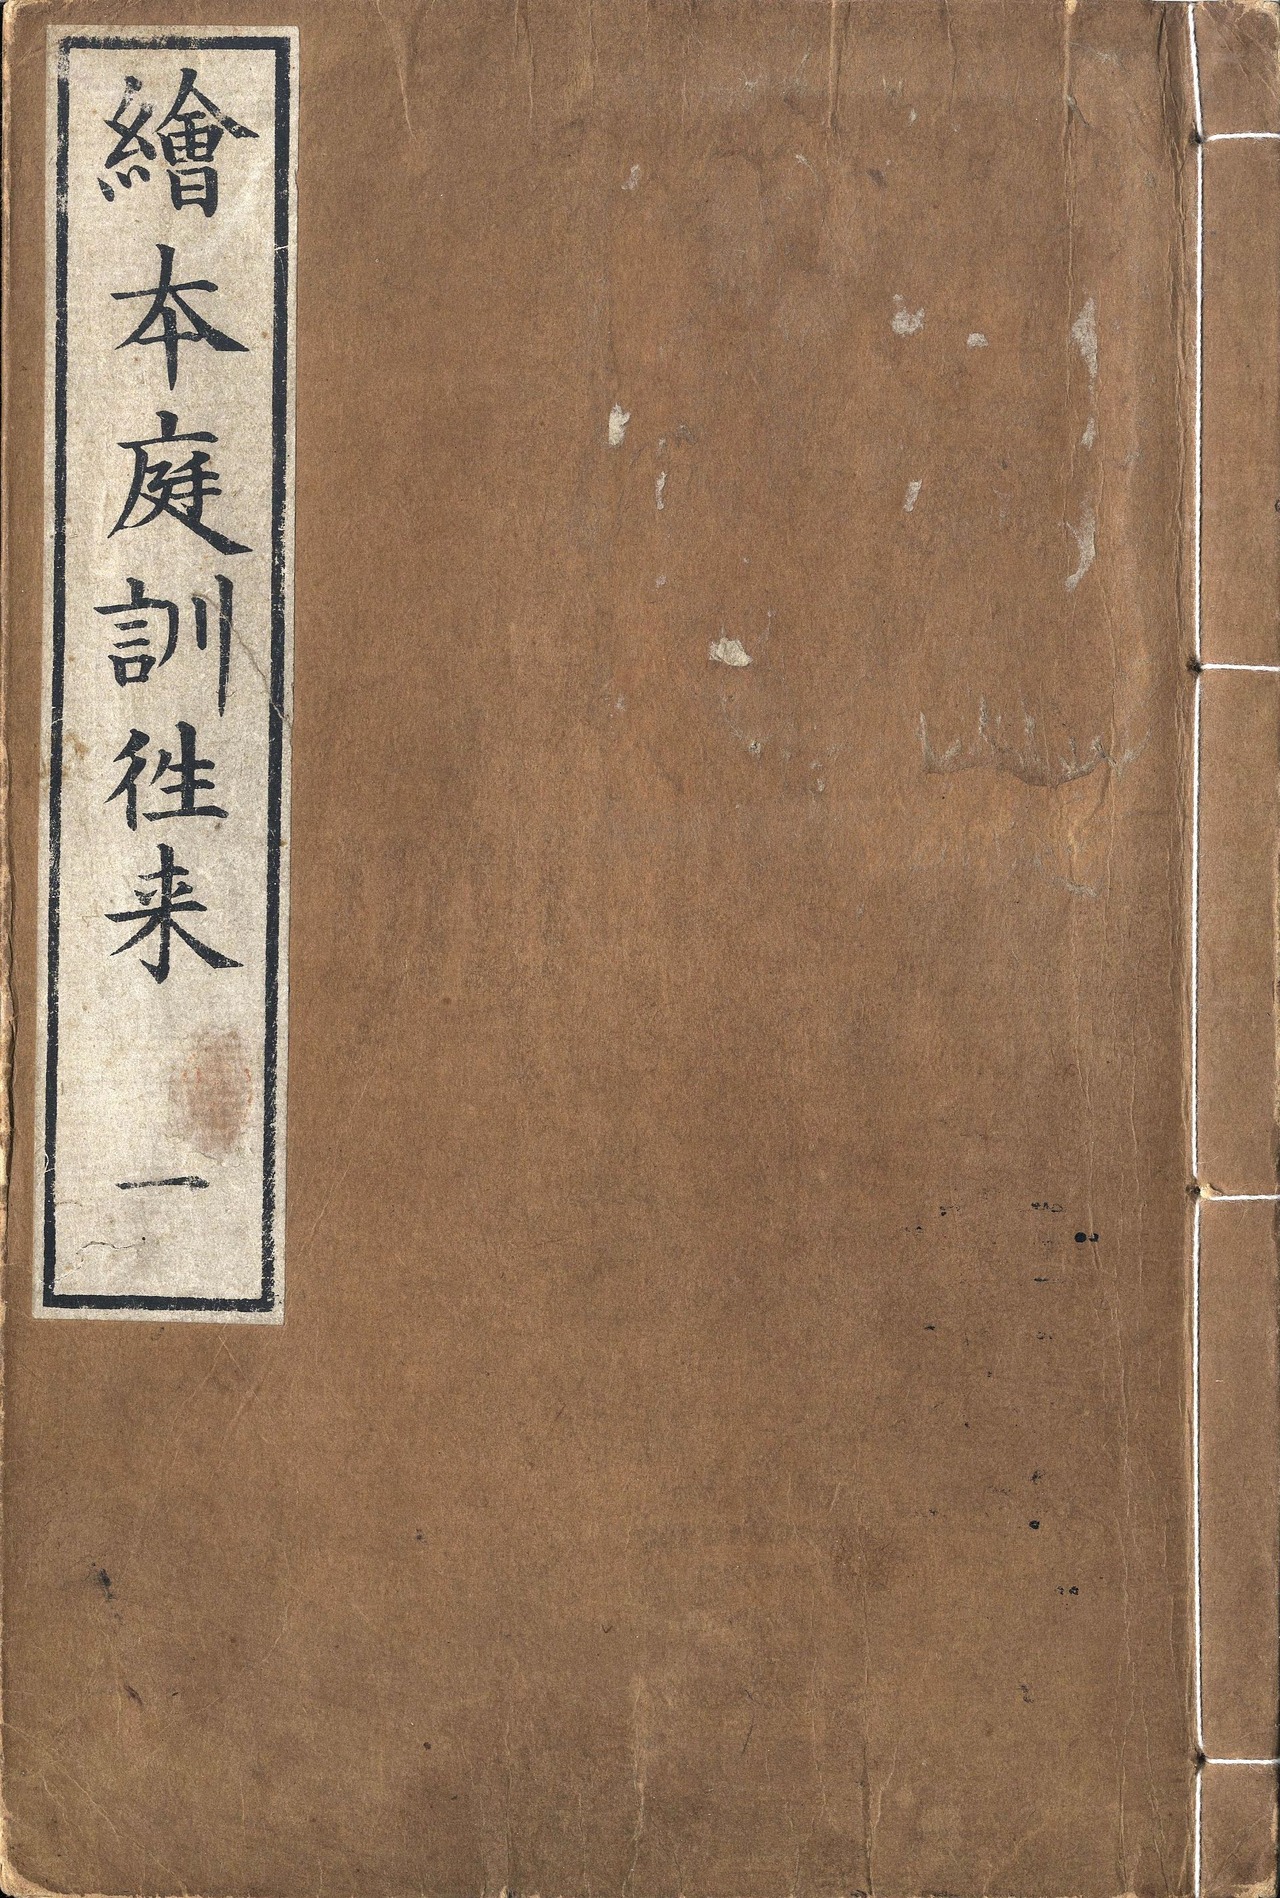 繪本庭訓徃来 一